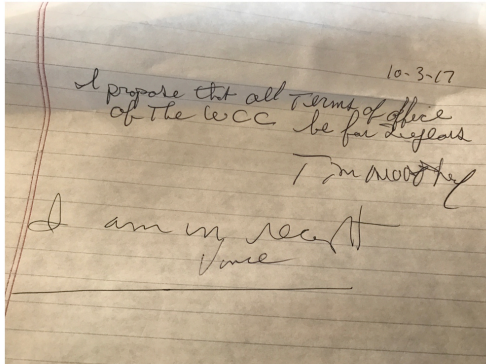 10-3-17
I propose that all Terms of office
of The WCC be for 2 years
Tim
I am in receipt
Vance